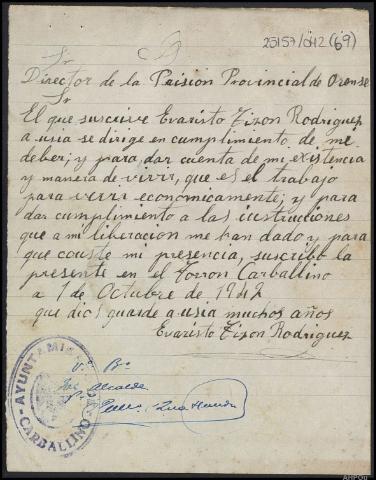 25157/042 (69)
Sr
Director de la Prision Provincial de Orense
Sr
El que suscrive Evaristo Tizon Rodriguez
a usia se dirige en cumplimiento de mi
deber; y para dar cuenta de mi existencia
y manera de vivir, que es el trabajo
para vivir economicamente; y para
dar cumplimiento a las instruciones
que a mi liberacion me han dado y para
que conste mi presencia, suscribo la
presente en el Torron Carballino
a 1 de Octubre de 1942
que dios guarde a usia muchos años
Evaristo Tizon Rodriguez
Vº Bº
Alcalde
AYUNTAMIENTO DE CARBALLINO
AHPOu